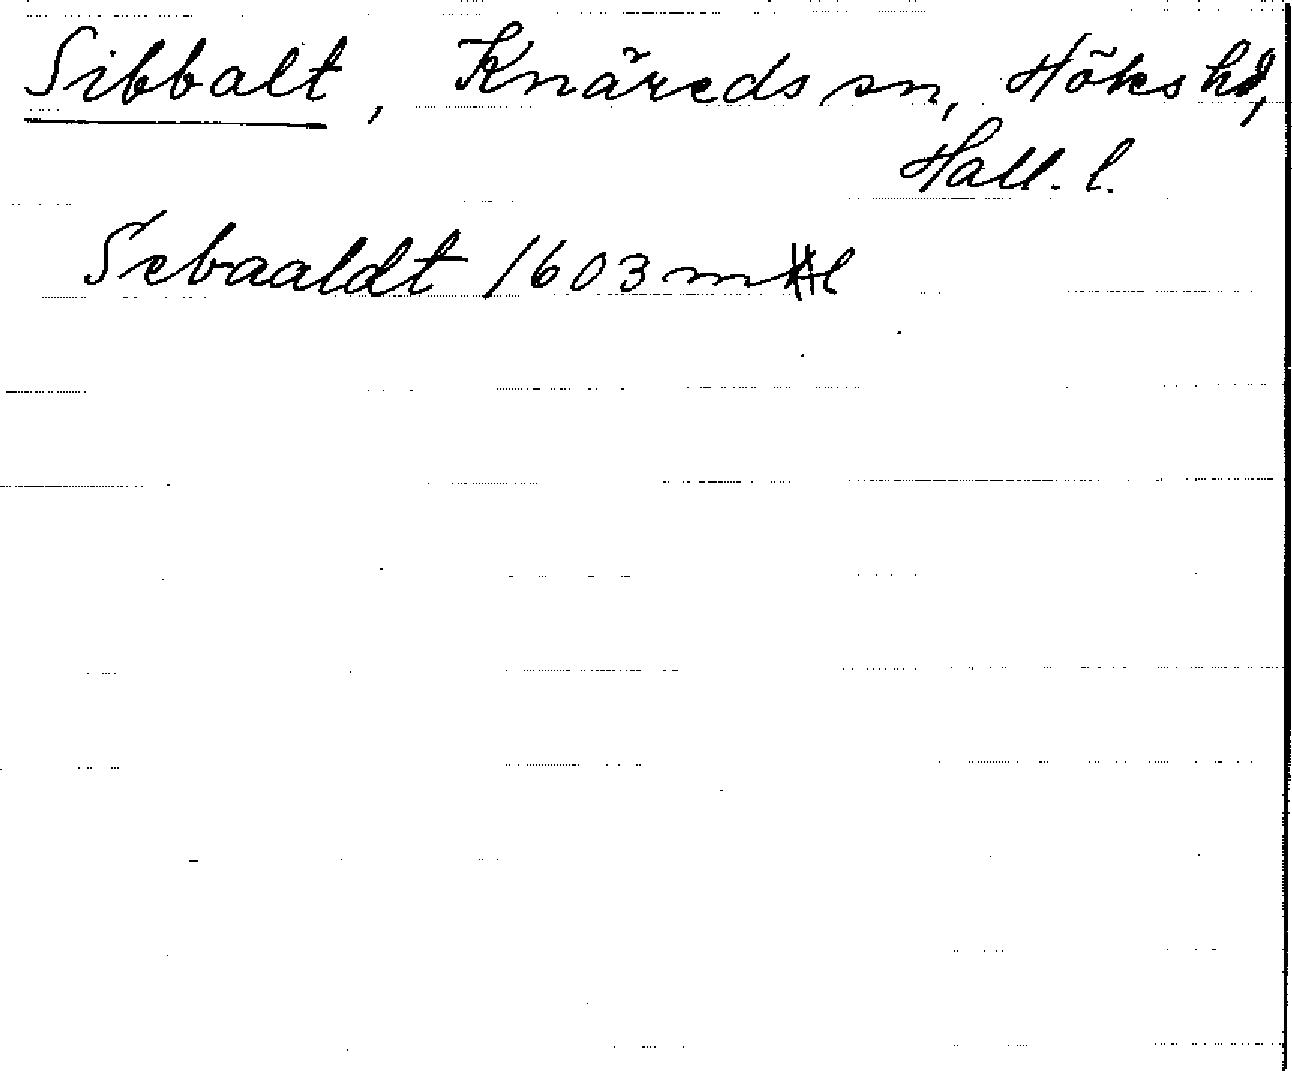 Sibbalt, Knäreds sn, Höks hd,
Hall. l.
Sebaaldt 1603